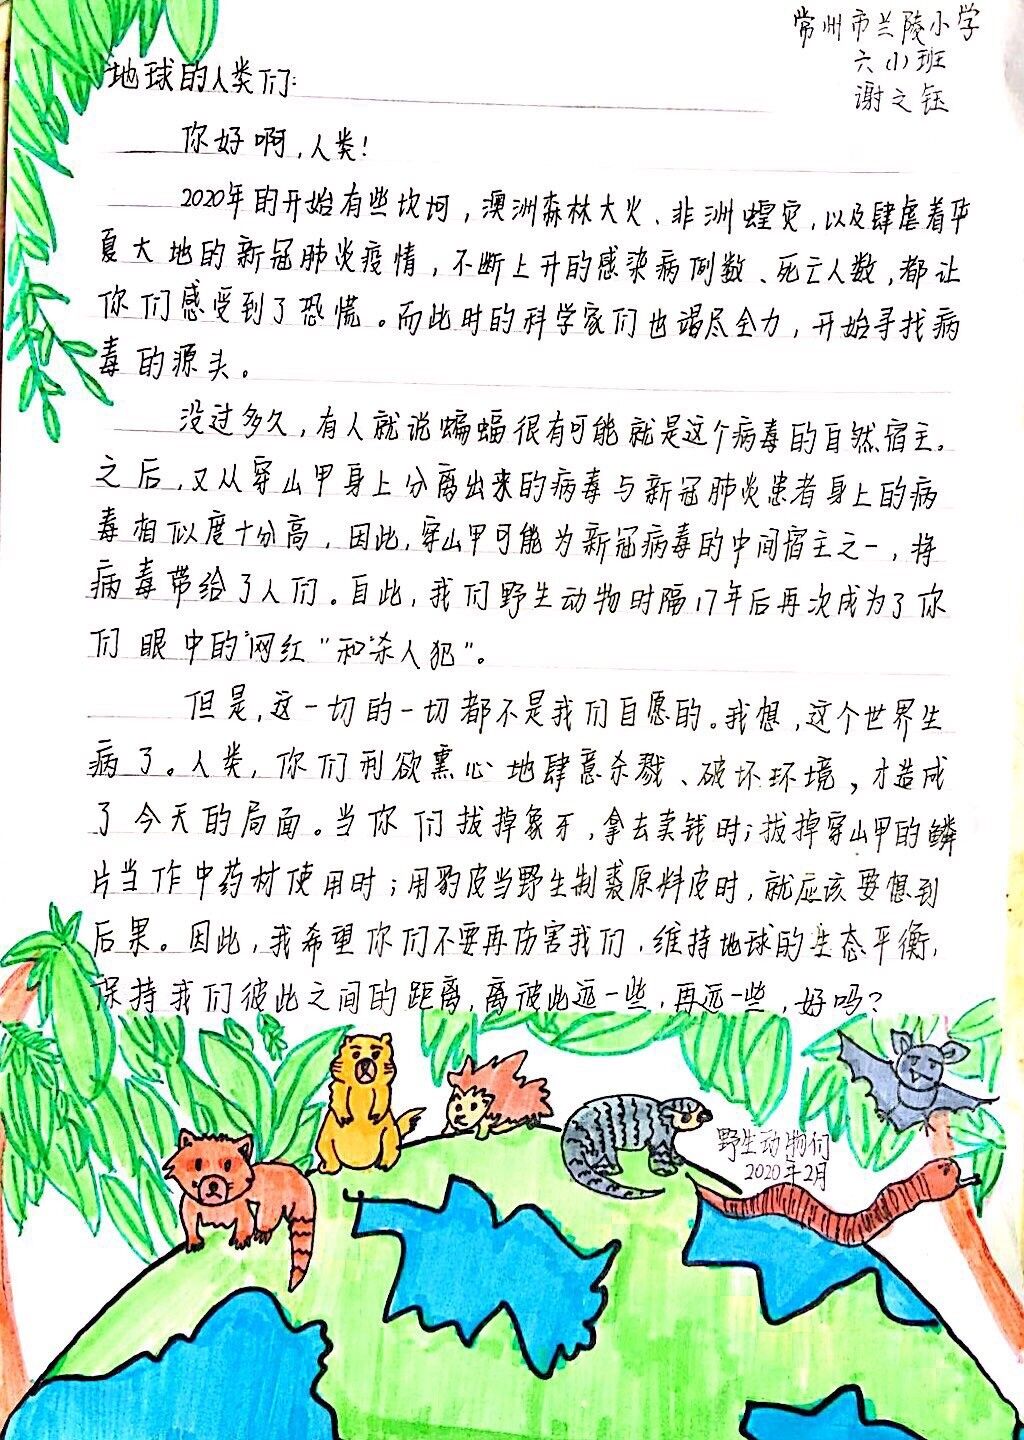 常州市兰陵小学
六(1)班
谢之钰
地球的人类们:
你好啊,人类!
2020年的开始有些坎坷,澳洲森林大火、非洲蝗灾,以及肆虐着华
夏大地的新冠肺炎疫情,不断上升的感染病例数、死亡人数,都让
你们感受到了恐慌。而此时的科学家们也竭尽全力,开始寻找病
毒的源头。
没过多久,有人就说蝙蝠很有可能就是这个病毒的自然宿主。
之后,又从穿山甲身上分离出来的病毒与新冠肺炎患者身上的病
毒相似度十分高,因此,穿山甲可能为新冠病毒的中间宿主之一,将
病毒带给了人们。自此,我们野生动物时隔17年后再次成为了你
们眼中的"网红"和"杀人犯"。
但是,这一切的一切都不是我们自愿的。我想,这个世界生
病了。人类,你们利欲熏心地肆意杀戮、破坏环境,才造成
了今天的局面。当你们拔掉象牙,拿去卖钱时;拔掉穿山甲的鳞
片当作中药材使用时;用豹皮当野生制裘原料皮时,就应该要想到
后果。因此,我希望你们不要再伤害我们,维持地球的生态平衡,
保持我们彼此之间的距离,离彼此远一些,再远一些,好吗?
野生动物们
2020年2月